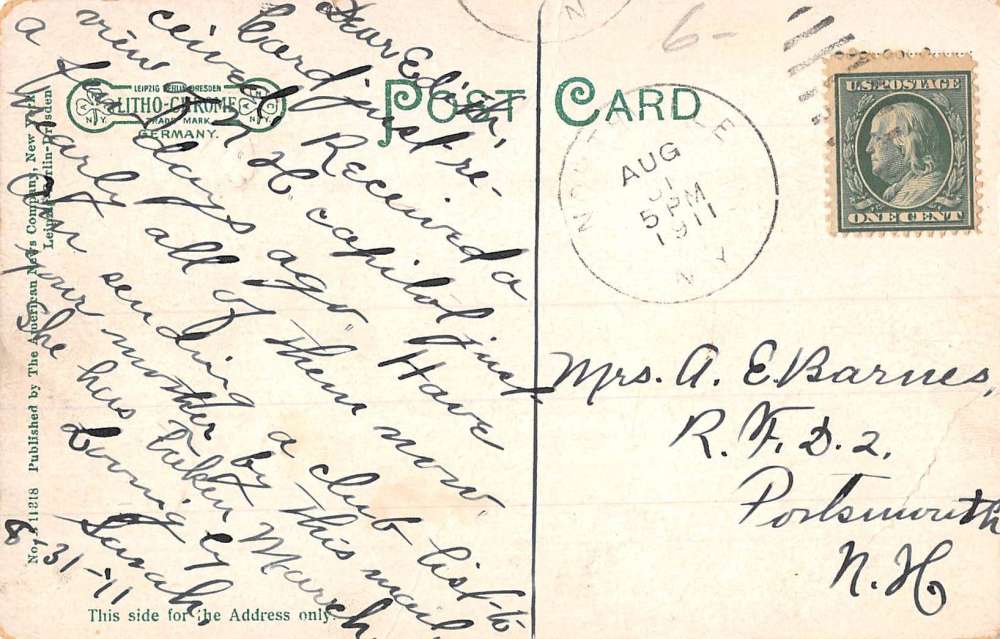 POST CARD
LEIPZIG BERLIN DRESDEN
LITHO-CHROME
TRADE MARK
GERMANY.
Published by The American News Company, New York
Leipzig-Berlin-Dresden
Dear Edith,
Card just re-
ceived. Received a
view of N.H. capitol just
a few days ago. Have
nearly all of them now.
Am sending a club list to
your mother by this mail
She has taken March
Lovingly
Sarah,
8-31-'11
This side for the Address only.
6-
AUG
31
5 PM
1911
N.Y.
U.S. POSTAGE
ONE CENT
Mrs. A. E. Barnes,
R. F. D. 2.
Portsmouth
N. H.